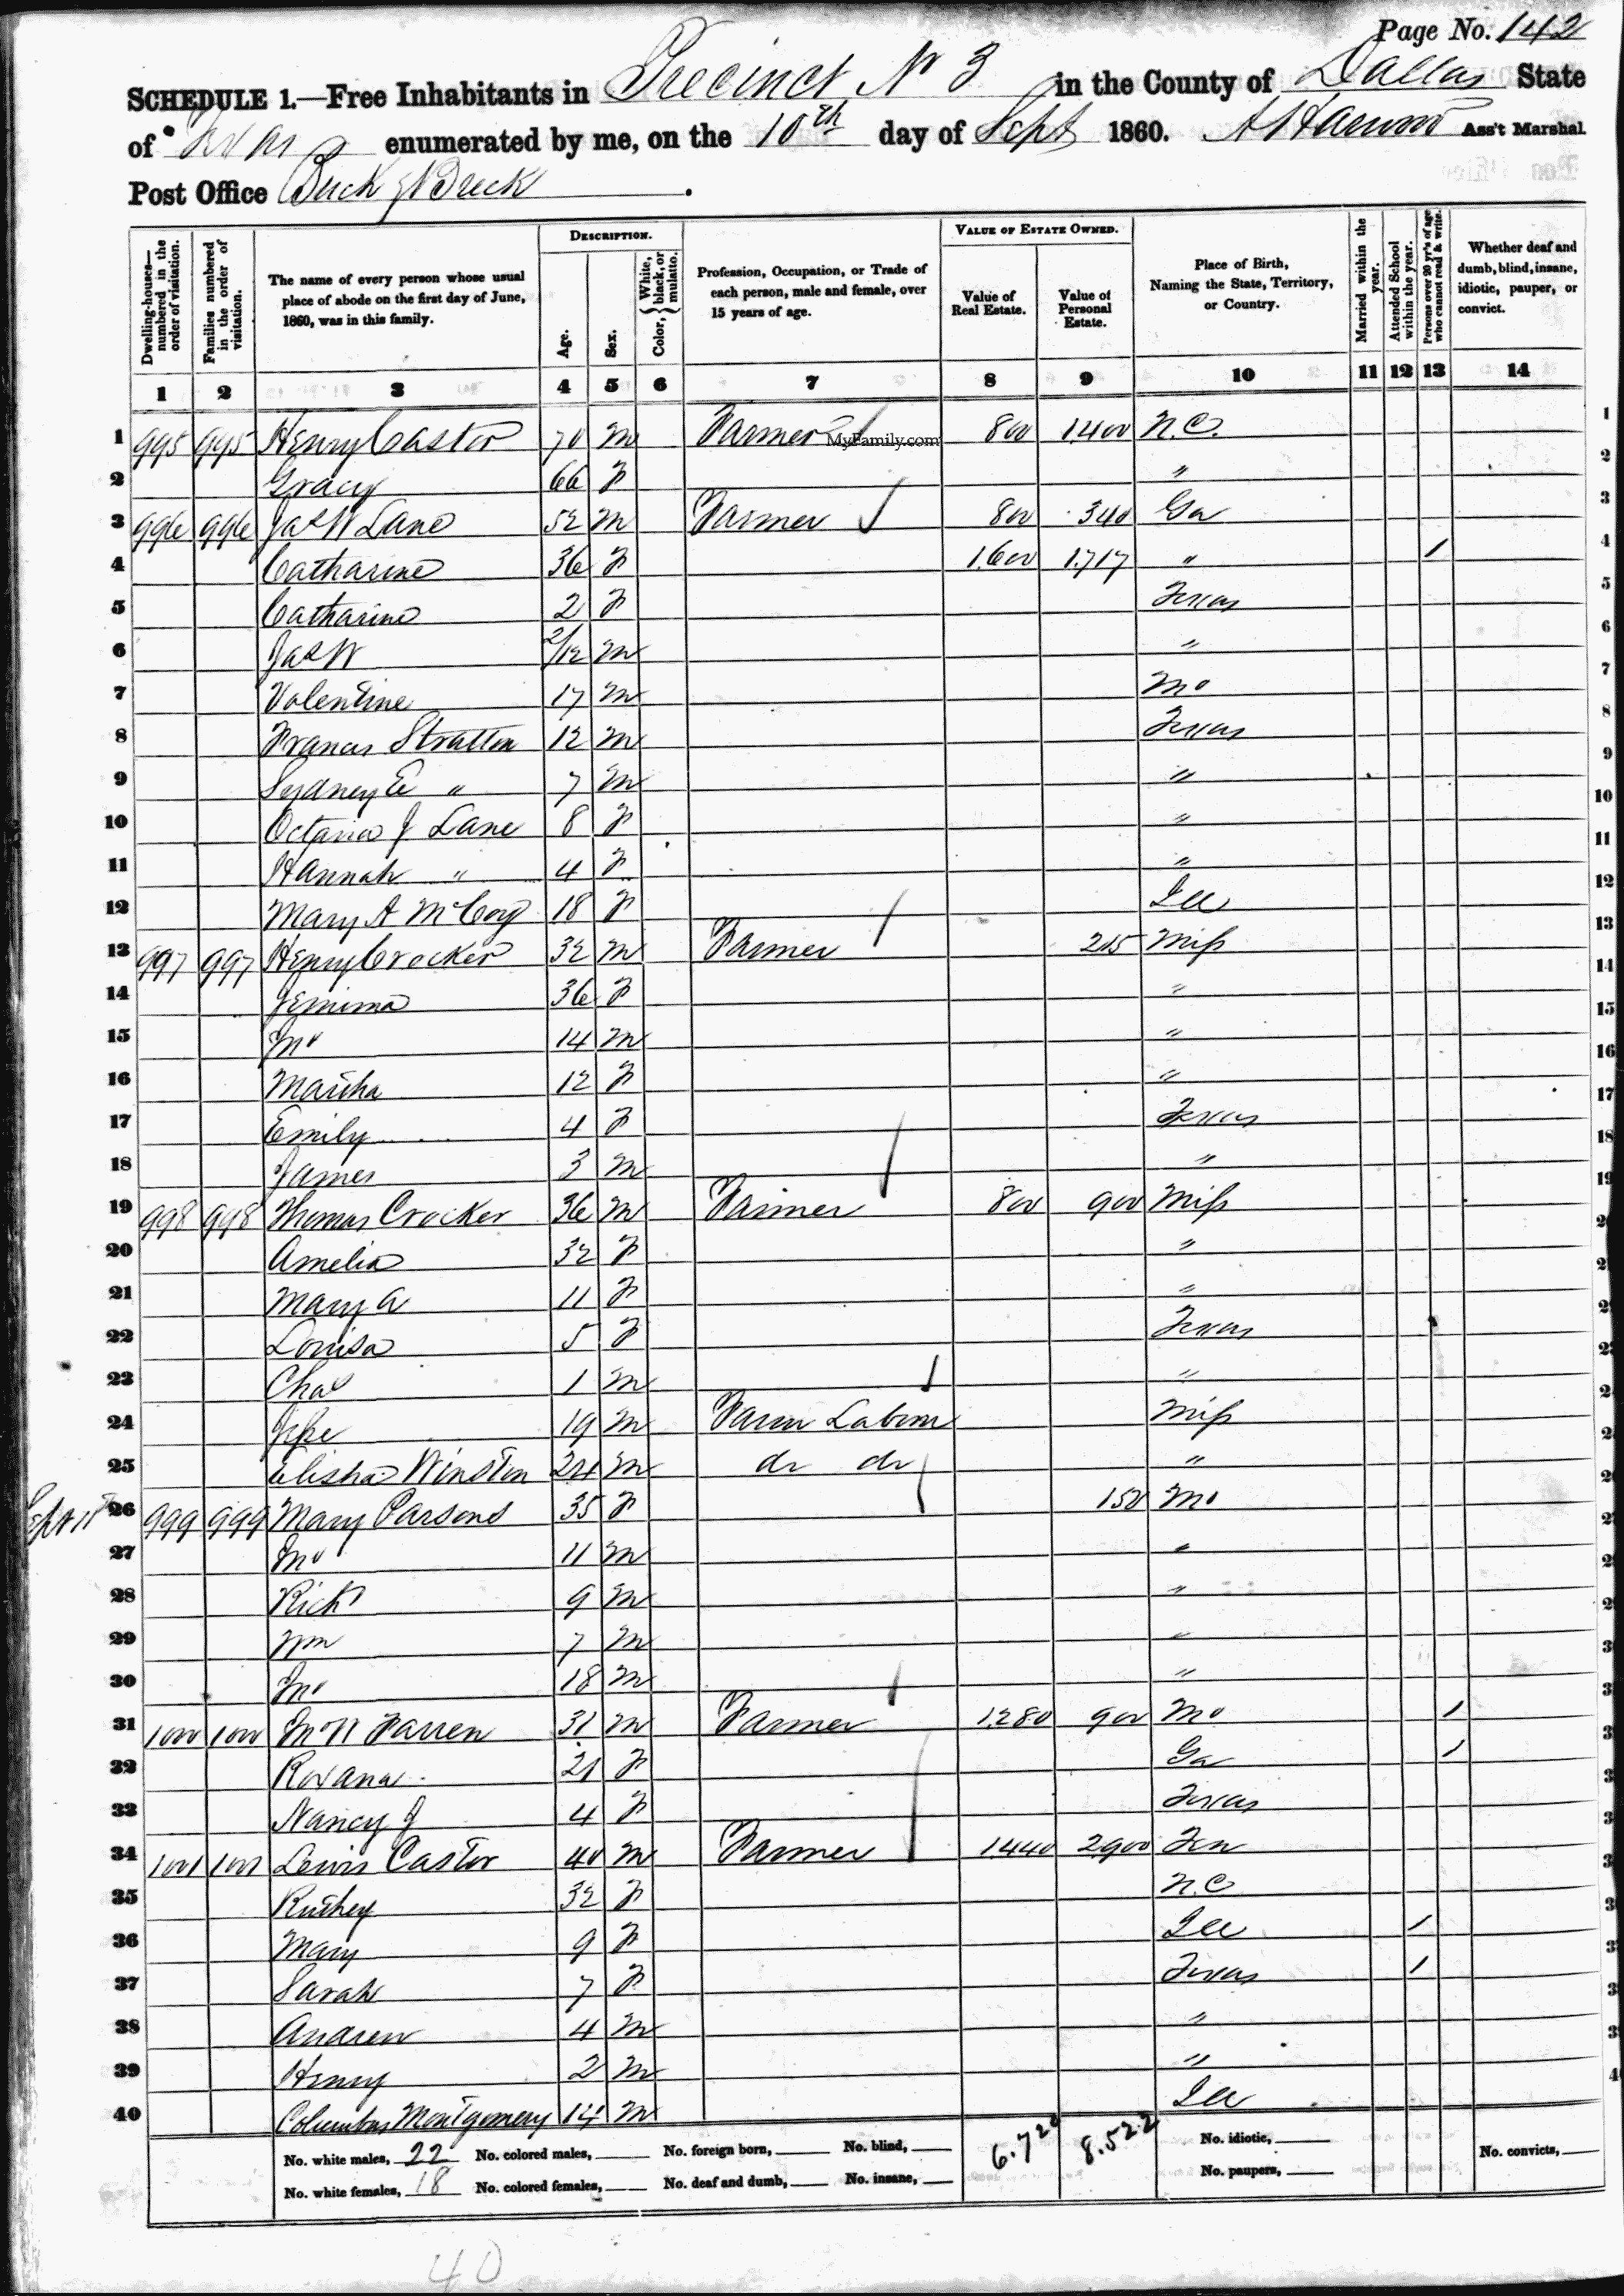 Page No. 142
SCHEDULE 1.—Free Inhabitants in Precinct N 3 in the County of Dallas State
of Texas enumerated by me, on the 10th day of Sept 1860. Ass't Marshal.
Post Office Buck & Breck.
Dwelling-houses—numbered in the order of visitation.
Families numbered in the order of visitation.
The name of every person whose usual place of abode on the first day of June, 1860, was in this family.
DESCRIPTION.
Age.
Sex.
Color, { White, black, or mulatto.
Profession, Occupation, or Trade of each person, male and female, over 15 years of age.
VALUE OF ESTATE OWNED.
Value of Real Estate.
Value of Personal Estate.
Place of Birth, Naming the State, Territory, or Country.
Married within the year.
Attended School within the year.
Persons over 20 yr's of age who cannot read & write.
Whether deaf and dumb, blind, insane, idiotic, pauper, or convict.
1 2 3 4 5 6 7 8 9 10 11 12 13 14
1 995 995 Henry Castor 70 m Farmer 800 1400 N.C. 1
MyFamily.com
2 Gracy 66 F " 2
3 996 996 Jas W Lane 52 m Farmer 800 340 Ga 3
4 Catharine 36 F 1600 1,717 " / 4
5 Catharine 2 F Texas 5
6 Jas W 2/12 m " 6
7 Valentine 17 m Mo 7
8 Francis Stratton 12 m Texas 8
9 Sydney E " 7 m " 9
10 Octavia J Lane 8 F " 10
11 Hannah " 4 F " 11
12 Mary A McCoy 18 F Ill 12
13 997 997 Henry Crocker 32 m Farmer 215 Miss 13
14 Jemima 36 F " 14
15 Jno 14 m " 15
16 Martha 12 F " 16
17 Emily 4 F Texas 17
18 James 3 m " 18
19 998 998 Thomas Crocker 36 m Farmer 800 900 Miss 19
20 Amelia 32 F "
21 Mary A 11 F "
22 Louisa 5 F Texas
23 Chas 1 m "
24 Jesse 19 m Farm Labour Miss
25 Elisha Winston 24 m do do "
Sept 11th 26 999 999 Mary Parsons 35 F 150 Mo
27 Jno 11 m "
28 Richd 9 m "
29 Wm 7 m "
30 Jno 18 m "
31 1000 1000 Jno W Farren 31 m Farmer 1280 900 Mo /
32 Roxana 21 F Ga /
33 Nancy J 4 F Texas
34 1001 1001 Lewis Castor 40 m Farmer 1440 2900 Ten
35 Ruthey 32 F N.C
36 Mary 9 F Ill /
37 Sarah 7 F Texas /
38 Andrew 4 m "
39 Henry 2 m "
40 Columbus Montgomery 14 m Ill
No. white males, 22 No. colored males, No. foreign born, No. blind, 6.720 8.522 No. idiotic, No. convicts,
No. white females, 18 No. colored females, No. deaf and dumb, No. insane, No. paupers,
40